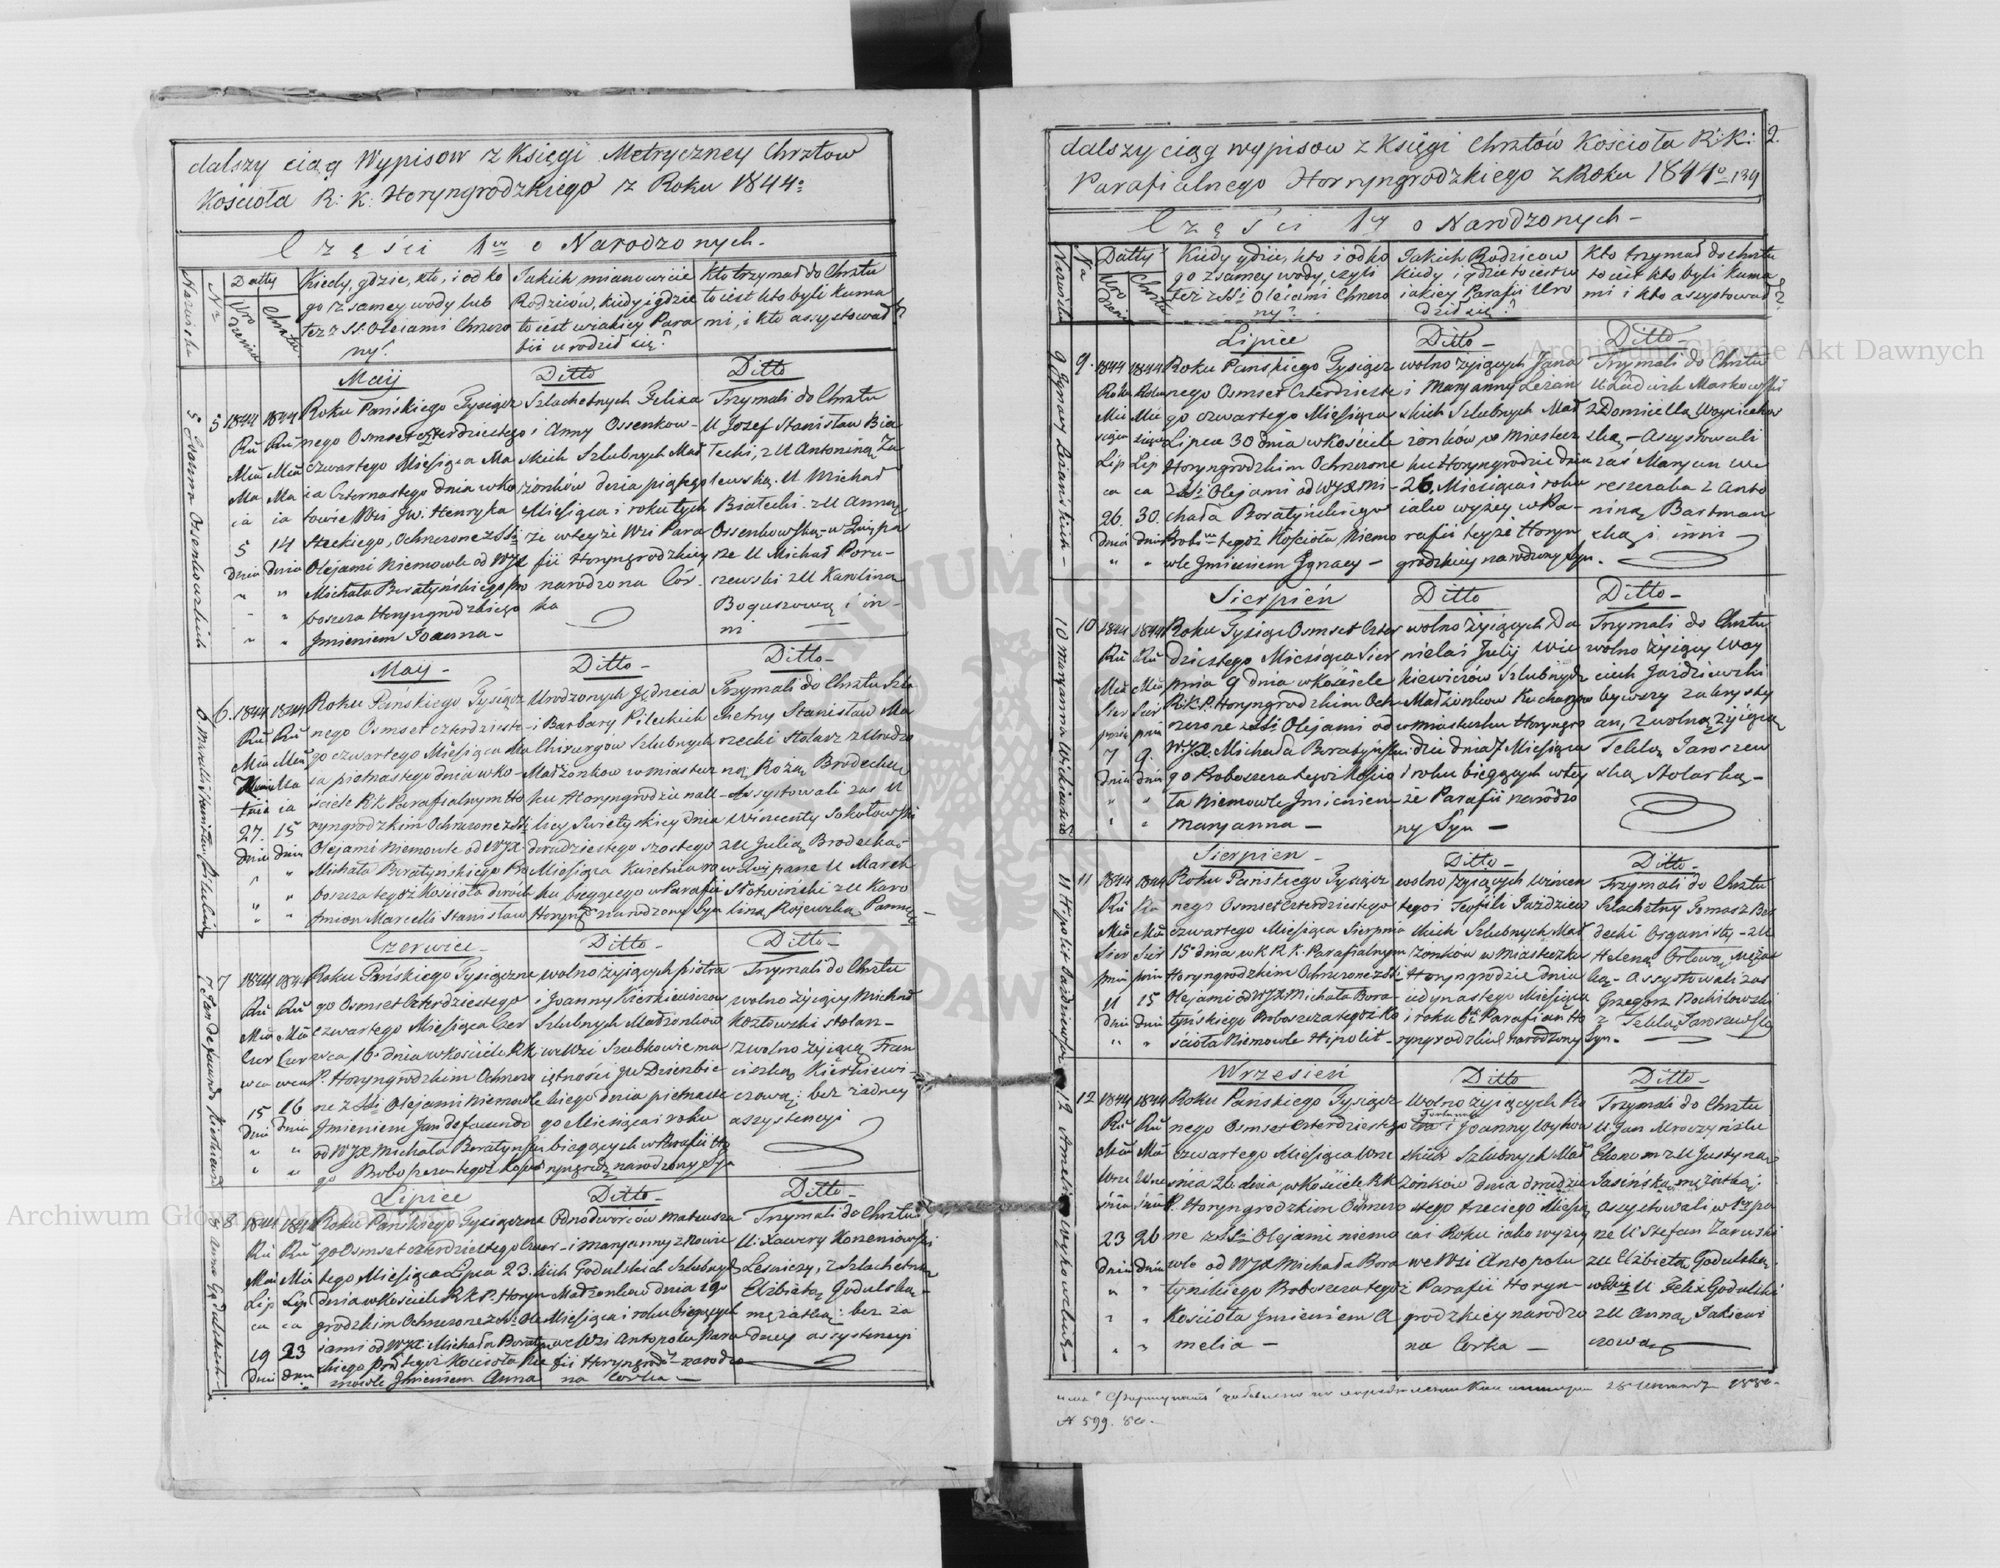 dalszy ciąg Wypisow z Księgi Metryczney Chrztow
Kościoła R: K: Horyngrodzkiego z Roku 1844º
Części 1ey o Narodzonych.
Nazwiska
Nr
Datty
Urodzenia
Chrztu
Kiedy, gdzie, kto, i od ko
go z samey wody lub
tez z SS. Olejami Chrzczo
ny?
Jakich mianowicie
Rodziców, kiedy i gdzie
to iest w iakiey Para
fii urodził się?
Kto trzymał do Chrztu
to iest kto byli Kuma
mi, i kto assystował?
5 Joanna Ossenkowskich
5
1844 1844
Ru Ru
Mca Mca
Ma Ma
ia ia
5 14
dnia dnia
Maij
Roku Pańskiego Tysiącz
nego Osmset czterdziestego
czwartego Miesiąca Ma
ia Czternastego dnia w Ko
towie Wsi JW. Henryka
Steckiego, Ochrzczone z SS:
Olejami Niemowle od WJX
Michała Boratyńskiego Pro
boszcza Horyngrodzkiego
Jmieniem Joanna -
Ditto
Szlachetnych Felixa
i Anny Ossenkow-
skich Szlubnych Mał
żonków dnia piątego
Miesiąca i roku tych
że w teyże Wsi Para
fii Horyngrodzkiey
narodzona Cór-
ka
Ditto
Trzymali do Chrztu
U Jozef Stanisław Bia
łecki, z U Antoniną Za
lewską. U Michał
Białecki z U Anną
Ossenkowską - w 2giej pa
rze U Michał Poru-
szewski z U Karolina
Boguszową i in-
ni
6 Marceli Stanisław Pileckich
6.
1844 1844
Ru Ru
27. 15
dnia dnia
Maij -
Roku Pańskiego Tysiącz
nego Osmset czterdzieste-
go czwartego Miesiąca Ma
ia piętnastego dnia w Ko-
ściele RK Parafialnym Ho
ryngrodzkim Ochrzczone z SS:
Olejami Niemowle od WJX
Michała Boratyńskiego Pro
boszcza tegoż Kościoła dwóch
Jmion Marcelli Stanisław
Ditto -
Urodzonych Jędrzeia
i Barbary Pileckich
Chirurgow Szlubnych
Małżonkow w miastecz
ku Horyngrodzie na U-
licy Swietyskiey dnia
dwudziestego szostego
Miesiąca Kwietnia ro
ku bieżącego w Parafii
Horyng: narodzony Syn
Ditto -
Trzymali do Chrztu Szla
chetny Stanisław Ma
rzecki Stolarz z Urodzo
ną Rożą Brodecką
Assystowali zas U
Wincenty Sokołowski
z U Julią Brodecką
w 2giej parze U Marek
Słotwiński z U Karo
liną Rojewską Panną -
7 Jan defacundo Kierkiewicz
7
1844 1844
Ru Ru
Mca Mca
Czer Czer
wca wca
15 16
dnia dnia
Czerwiec -
Roku Pańskiego Tysiączne
go Osmset Czterdziestego
czwartego Miesiąca Czer
wca 16 dnia w Kościele RK
P. Horyngrodzkim Ochrzczo
ne z SS: Olejami Niemowle
Jmieniem Jan defacundo
od WJX Michała Boratyński
go Proboszcza tegoż Kościoł
Ditto -
wolno żyjących Piotra
i Joanny Kierkiewiczow
Szlubnych Małżonków
we Wsi Szubkowie ma
iętności JW Dzierbic
kiego dnia piętnaste
go Miesiąca i roku
bieżących w Parafii Ho
ryngrodz: narodzony Syn
Ditto -
Trzymali do Chrztu
wolno żyjący Michał
Kozłowski stolarz-
z wolno żyjącą Fran
ciszką Kierkiewi-
czową; bez żadney
assystencyi
8 Anna Godulskich
8
1844 1844
Ru Ru
Mca Mca
Lip Lip
ca ca
19 23
dnia dnia
Lipiec
Roku Pańskiego Tysiączne
go Osmset czterdziestego Czwar-
tego Miesiąca Lipca 23.
dnia w Kościele RKP. Horyn
grodzkim Ochrzczone z SS: Ole
iami od WJX Michała Boratyń
skiego Prob: tegoż Kościoła Nie
mowle Jmieniem Anna
Ditto -
Odnodworców Mateusza
i Maryanny z Nowic
kich Godulskich Szlubnych
Małżonków dnia 19go
Miesiąca i roku bieżących
we Wsi Antopolu Para
fii Horyngrodz: narodzo
na Corka -
Ditto -
Trzymali do Chrztu
U: Xawery Korzeniowski
Leśniczy, z Szlachetną
Elżbietą Godulską -
mężatką; bez ża
dney assystencyi
dalszy ciąg wypisow z Księgi Chrztów Kościoła R: K: 2.
Parafialnego Horyngrodzkiego z Roku 1844º 139
Części 1ey o Narodzonych -
Nazwiska
Nr
Datty
Urodzenia
Chrztu
Kiedy gdzie, kto i od ko
go z samey wody, czyli
też z SS: Olejami Chrzczo
ny?
Jakich Rodzicow
kiedy i gdzie to iest w
iakiey Parafii Uro
dził się?
Kto trzymał do chrztu
to iest kto byli Kuma
mi i kto assystował?
9 Ignacy Leżańskich -
9.
1844 1844
Roku Roku
Mie Mie
siąca siąca
Lip Lip
ca ca
26. 30.
dnia dnia
Lipiec
Roku Pańskiego Tysiącz
nego Osmset Czterdzieste
go czwartego Miesiąca
Lipca 30 dnia w kościele
Horyngrodzkim Ochrzczone
z SS: Olejami od WJX Mi-
chała Boratyńskiego
Prob: tegoż Kościoła Niemo
wle Jmieniem Ignacy -
Ditto -
wolno żyjących Jana
i Maryanny Leżań
skich Szlubnych Mał
żonków w Miastecz
ku Horyngrodzie dnia
26. Miesiąca i roku
iako wyżey w Pa-
rafii teyże Horyn
grodzkiey narodzony Syn.
Ditto
Trzymali do Chrztu
U Ludwik Markowski
z Domicellą Woyciechow
ską - Assystowali
zaś Maryan We
reszczaka z Anto
niną Bartman
ską i inni -
10 Maryanna Wickiewiczów
10
1844 1844
Ru Ru
Mca Mca
Sier Sier
pnia pnia
7 9.
dnia dnia
Sierpień
Roku Tysiąc Osmset Czter
dziestego Miesiąca Sier
pnia 9 dnia w Kościele
R.K.P. Horyngrodzkim Och
rzczone z SS: Olejami od
WJX. Michała Boratyńskie
go Proboszcza tegoż Kościo
ła Niemowle Jmieniem
Maryanna -
Ditto
wolno żyjących Da
niela i Julij Wic
kiewiczów Szlubnych
Małżonkow Kucharzow
w miasteczku Horyngro
dzie dnia 7 Miesiąca
i roku bieżących w tey
że Parafii narodzo
ny Syn -
Ditto -
Trzymali do Chrztu
wolno żyjący Woy
ciech Jazdziewski
bywszy zakrysty
an, z wolną żyjącą
Teklą Jaroszew
ską Stolarką -
11 Hipolit Jazdziewskich
11
1844 1844
Ru Ru
Mca Mca
Sier Sier
pnia pnia
11 15
dnia dnia
Sierpien -
Roku Pańskiego Tysiącz
nego Osmset Czterdziestego
czwartego Miesiąca Sierpnia
15 dnia w K R K. Parafialnym
Horyngrodzkim Ochrzczone z SS:
Olejami od WJX Michała Bora-
tyńskiego Proboszcza tegoż Ko
ścioła Niemowle Hipolit -
Ditto -
wolno żyjących Wincen
tego i Teofili Jazdziew
skich Szlubnych Mał
żonków w Miasteczku
Horyngrodzie dnia
iedynastego Miesiąca
i roku bż: Parafian Ho
ryngrodzkich narodzony Syn -
Ditto -
Trzymali do Chrztu
Szlachetny Tomasz
Organista - z U
Heleną Orłową mężat
ką - Assystowali zaś
Grzegorz
z Teklą Jaroszewską
12 Amelia Wykowskich -
12
1844 1844
Ru Ru
Mca Mca
Wrze Wrze
śnia śnia
23 26
dnia dnia
Wrzesień
Roku Pańskiego Tysiącz
nego Osmset Czterdziestego
Czwartego Miesiąca Wrze
śnia 26 dnia w Kościele RK
P. Horyngrodzkim Ochrzczo
ne z SS: Olejami niemo
wle od WJX Michała Bora
tyńskiego Proboszcza tegoż
Kościoła Jmieniem A
melia -
Ditto
Wolno żyjących
i Joanny Wykow
skich Szlubnych Mał
żonków dnia dwudzie
stego trzeciego Miesią
ca i Roku iako wyżey
we Wsi Antopolu
Parafii Horyn-
grodzkiey narodzo
na Corka -
Ditto -
Trzymali do Chrztu
U Jan Mroczyński
Ekonom z U Justyną
Jasińską mężatką;
assystowali w 1ey pa
rze U Stefan Zaruski
z U Elżbietą Godulską -
w 2giej U Felix Godulski
z U Anną Jakiewi
czową
№ 599.
Archiwum Główne Akt Dawnych
Archiwum Główne Akt Dawnych